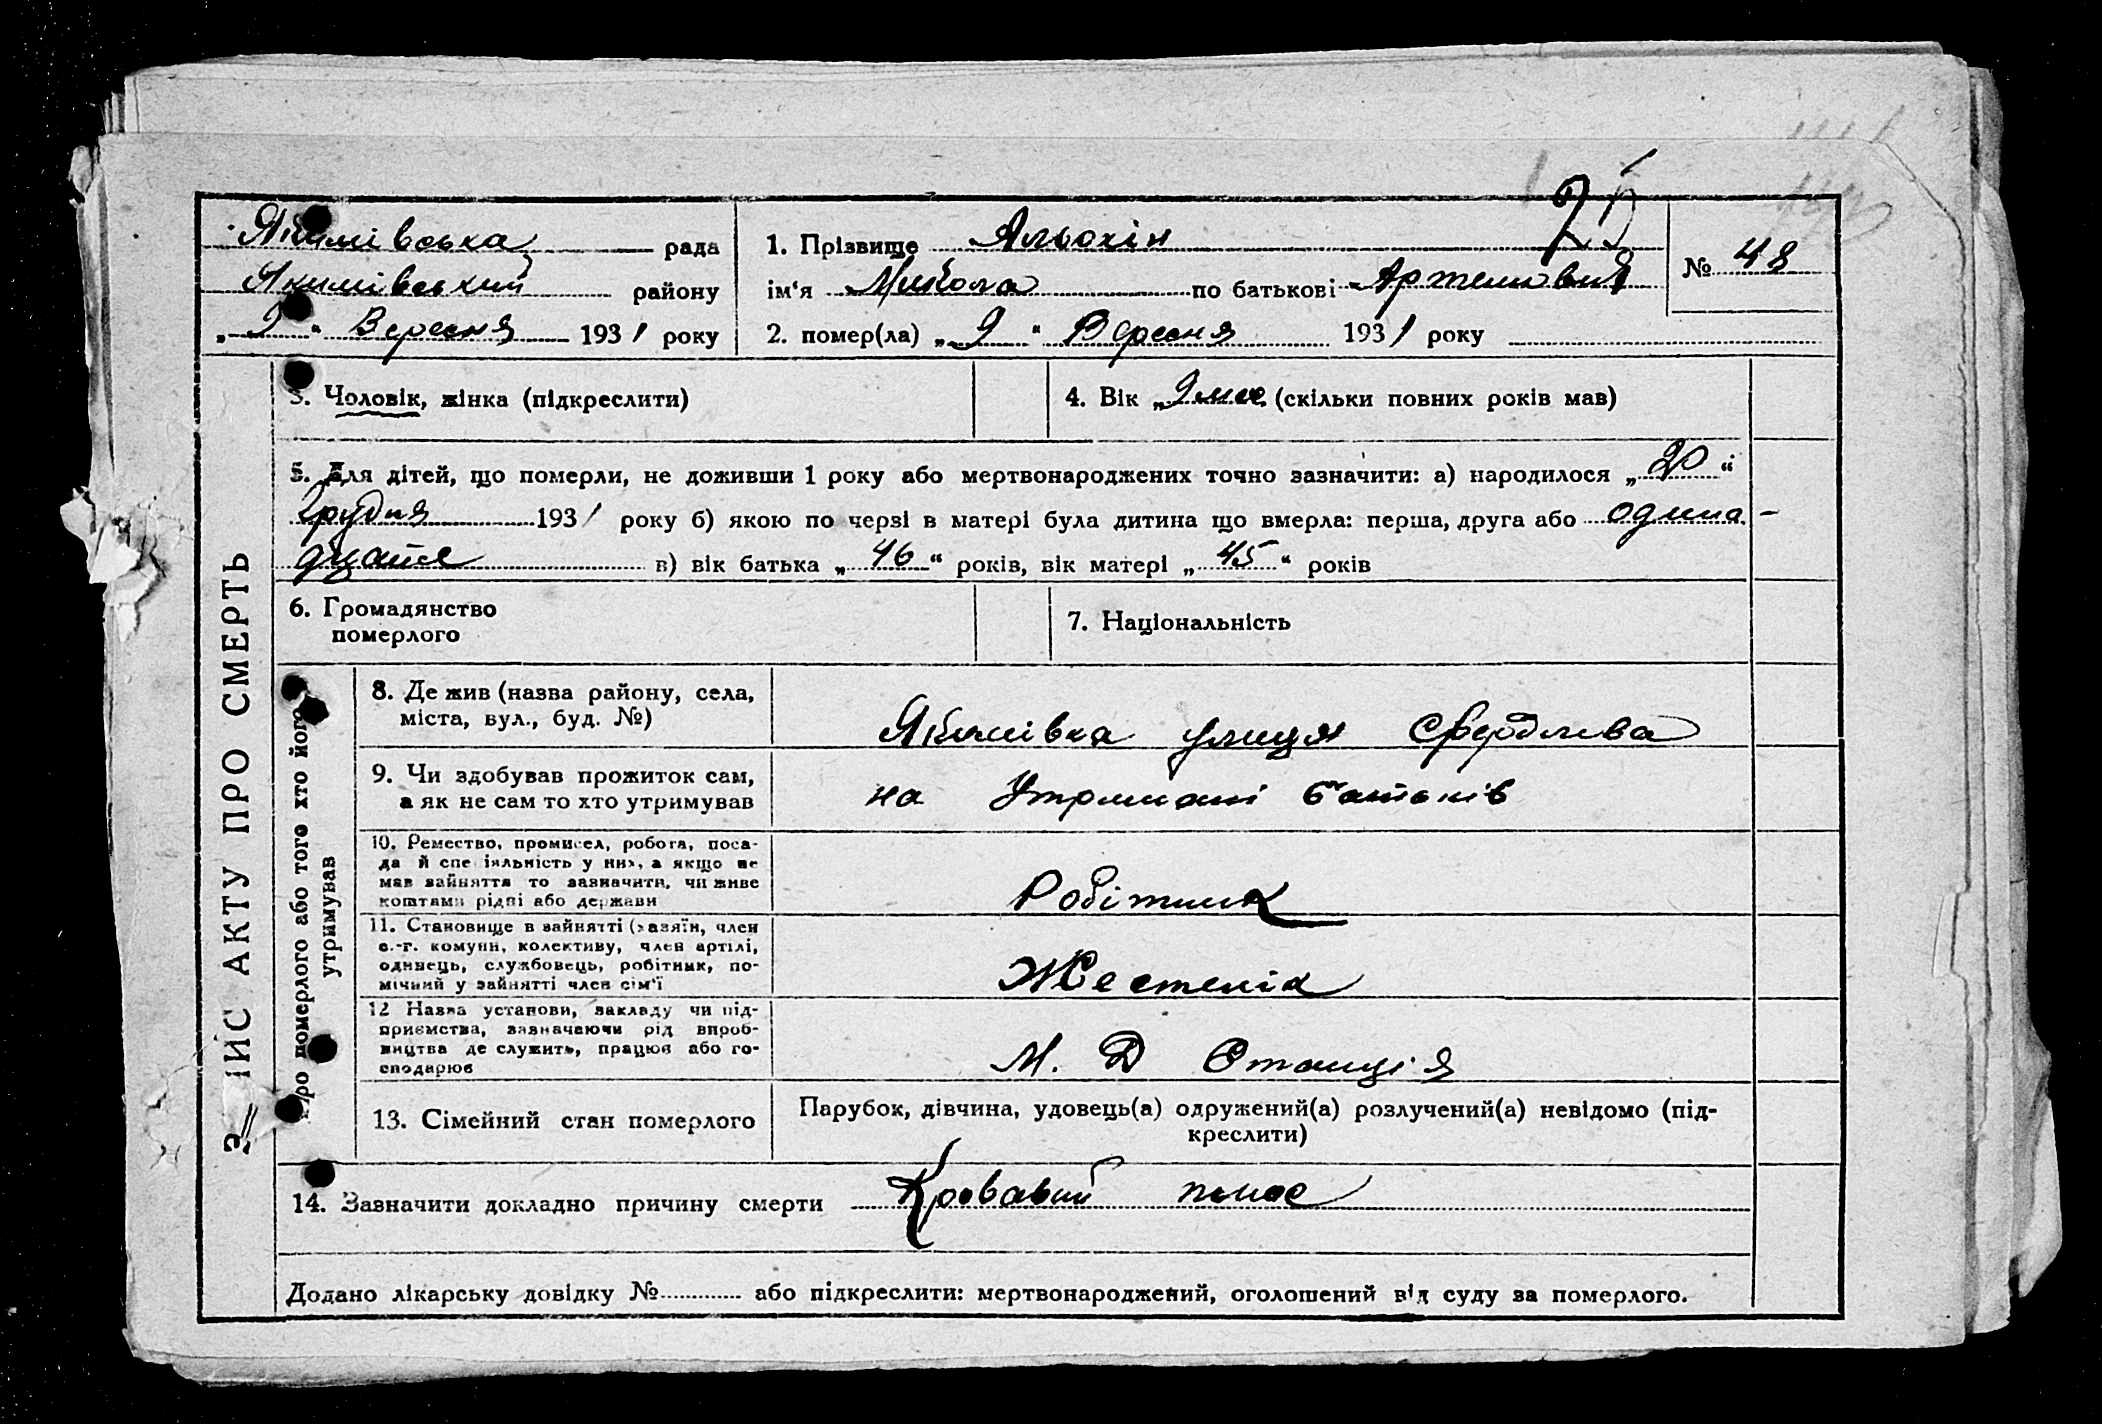 25
Якимівська рада
Якимівський району
„ 9 “ Вересня 1931 року
1. Прізвище Альохін
ім‘я Микола по батькові Артемович
2. помер(ла) „ 9 “ Вересня 1931 року
№ 48
З ПИС АКТУ ПРО СМЕРТЬ
3. Чоловік, жінка (підкреслити)
4. Вік „ 9 міс. (скільки повних років мав)
5. Для дітей, що померли, не доживши 1 року або мертвонароджених точно зазначити: а) народилося „ 20 “
Грудня 1931 року б) якою по черзі в матері була дитина що вмерла: перша, друга або одина-
дцате в) вік батька „ 46 “ років, вік матері „ 45 “ років
6. Громадянство
померлого
7. Національність
Про померлого або того хто його
утримував
8. Де жив (назва району, села,
міста, вул., буд. №)
Якимівка улиця Свердлова
9. Чи здобував прожиток сам,
а як не сам то хто утримував
на Утримані батьків
10. Ремество, промисел, робота, поса-
да й спе іяльність у них, а якщо не
мав зайняття то зазначити, чи живе
коштами рідні або держави
Робітник
11. Становище в зайнятті (хазяїн, член
с.-г. комуни, колективу, член артілі,
одинець, службовець, робітник, по-
мічний у зайнятті член сім'ї
Жестянік
12 Назва установи, закладу чи під-
приємства, зазначаючи рід вироб-
ництва де служить, працює або го-
сподарює
М. Д Станція
13. Сімейний стан померлого
Парубок, дівчина, удовець(а) одружений(а) розлучений(а) невідомо (під-
креслити)
14. Зазначити докладно причину смерти Кровавий понос
Додано лікарську довідку № або підкреслити: мертвонароджений, оголошений від суду за померлого.